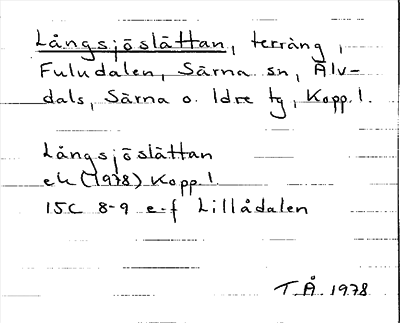 Långsjöslåttan, terräng,
Fuludalen, Särna sn, Älv-
dals, Särna o. Idre tg, Kopp. l.
Långsjöslåttan
ek (1978) Kopp. l.
15C 8-9 e-f Lillådalen
T.Å. 1978